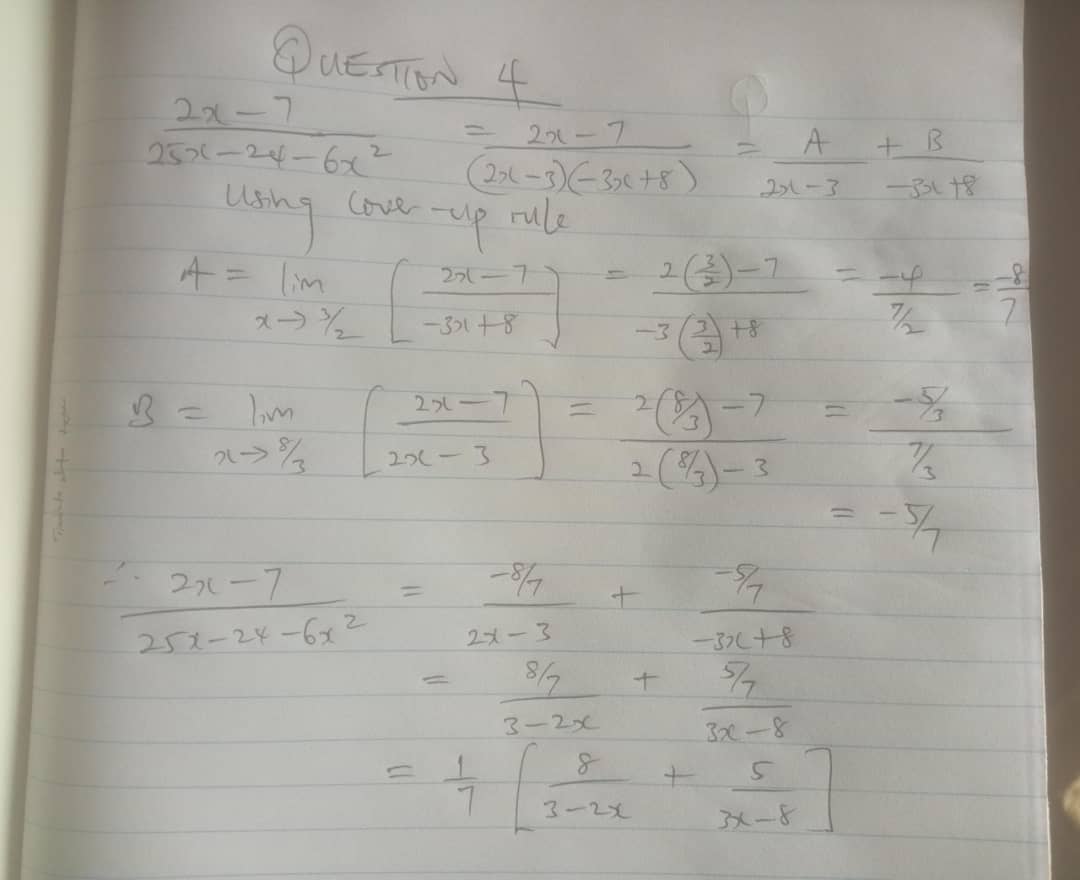 QUESTION 4
(2x-7)/(25x-24-6x²) = (2x-7)/((2x-3)(-3x+8)) = A/(2x-3) + B/(-3x+8)
Using cover-up rule
A = lim x→3/2 [(2x-7)/(-3x+8)] = (2(3/2)-7)/(-3(3/2)+8) = -4/(7/2) = -8/7
B = lim x→8/3 [(2x-7)/(2x-3)] = (2(8/3)-7)/(2(8/3)-3) = (-5/3)/(7/3)
= -5/7
∴ (2x-7)/(25x-24-6x²) = (-8/7)/(2x-3) + (-5/7)/(-3x+8)
= (8/7)/(3-2x) + (5/7)/(3x-8)
= 1/7 [8/(3-2x) + 5/(3x-8)]